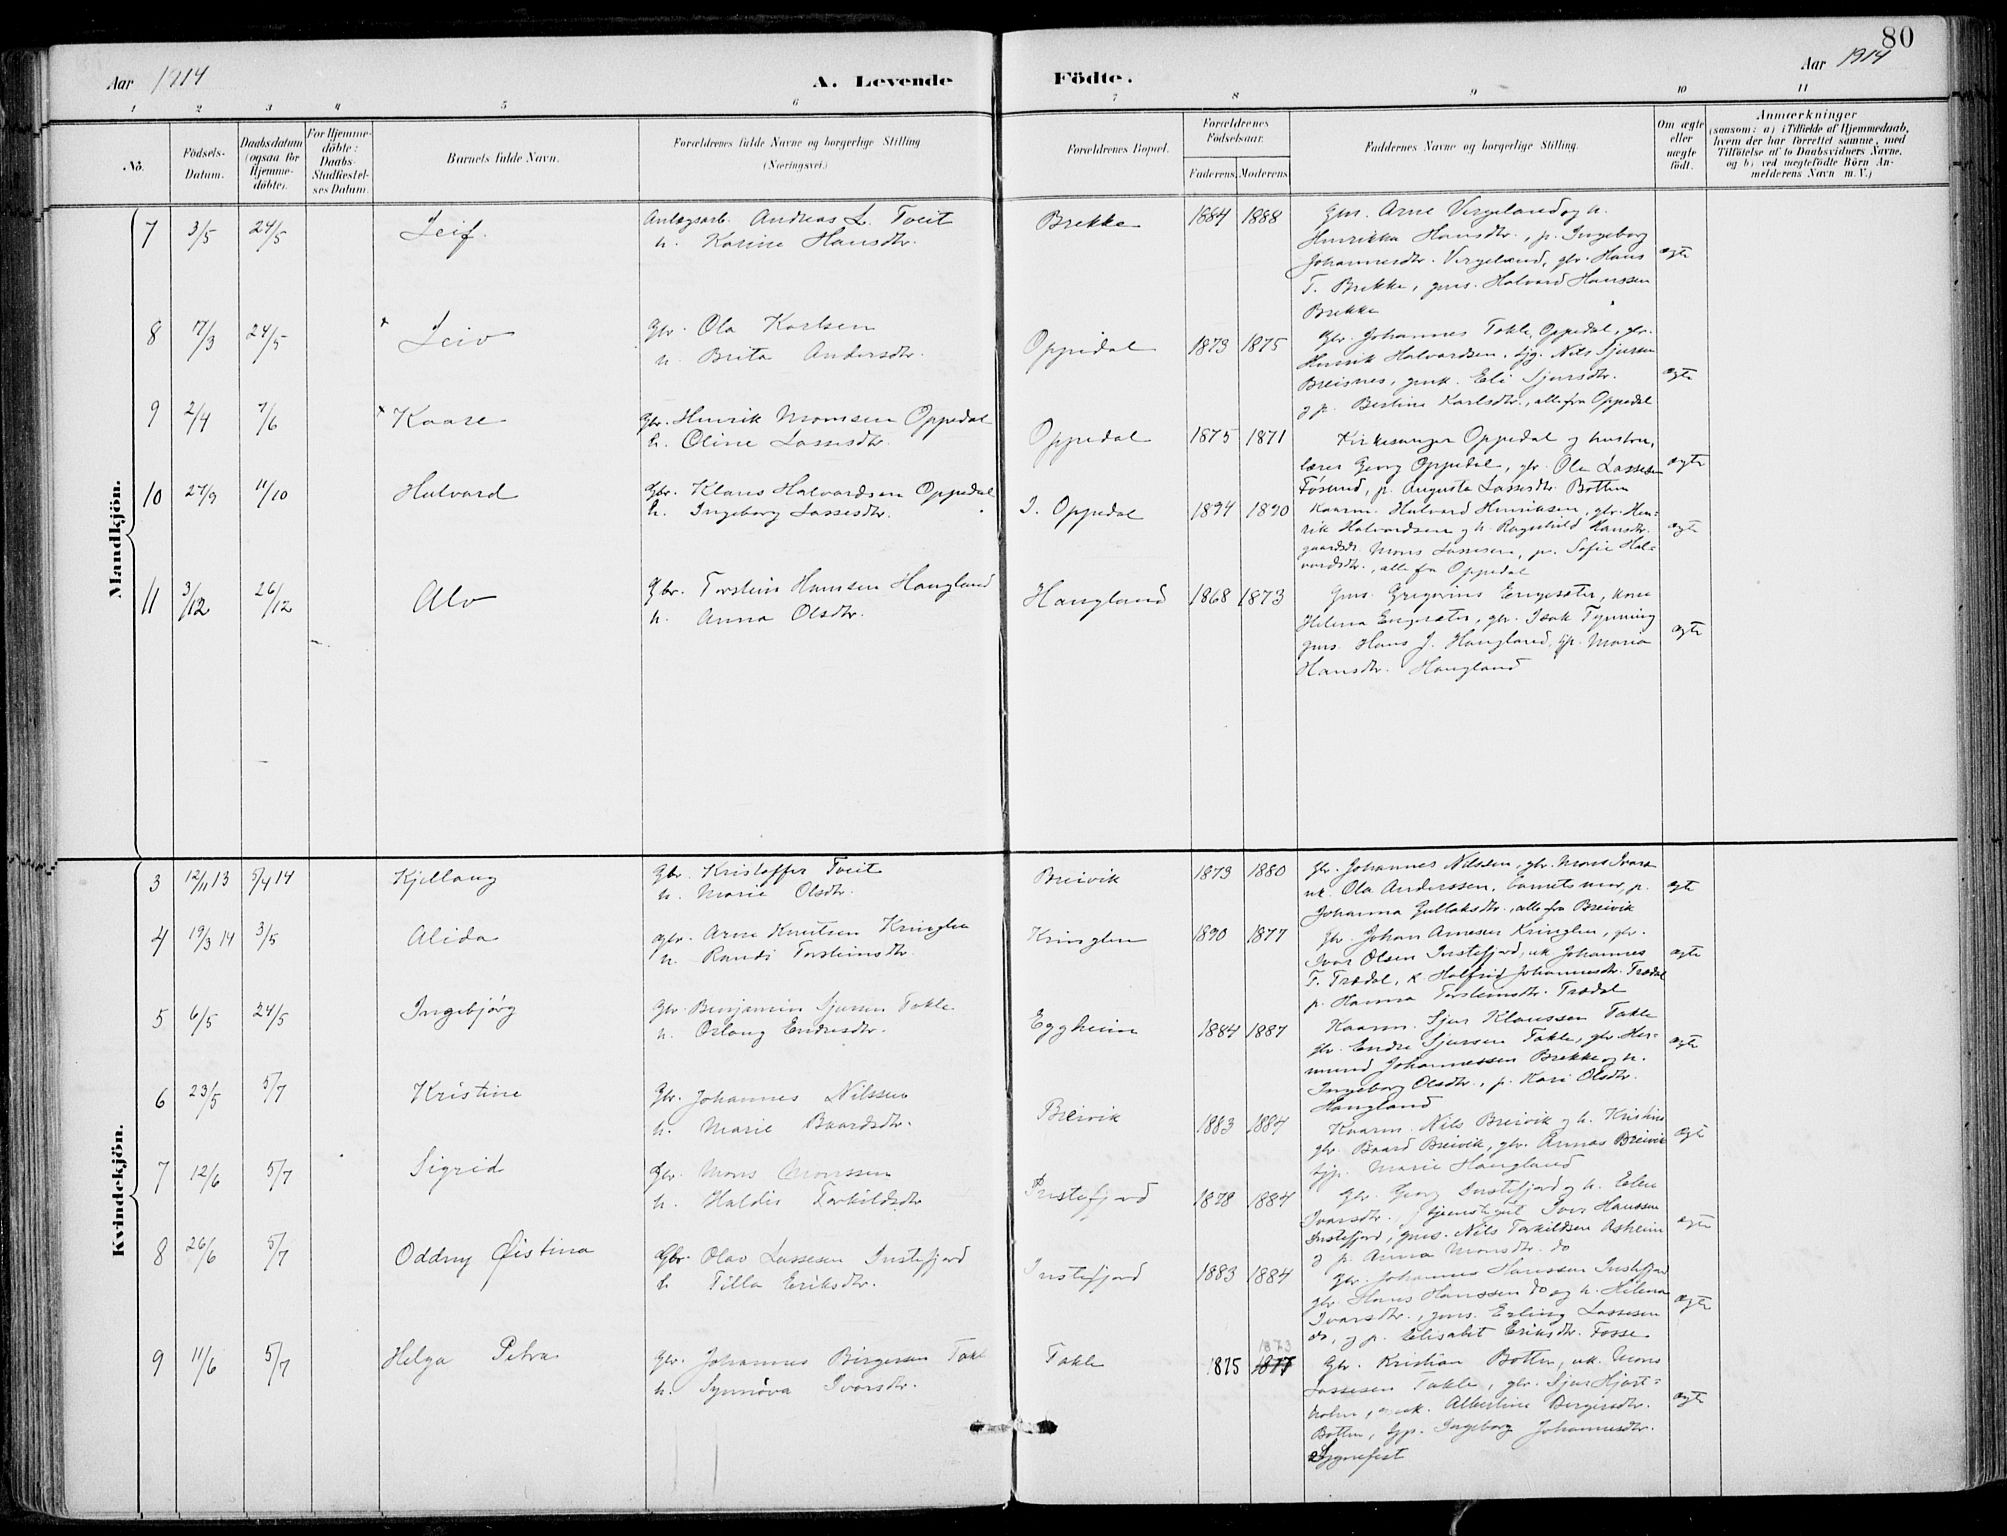 80
Aar 1914
A. Levende
Födte.
Aar 1914
1 2 3 4 5 6 7 8 9 10 11
No.
Födsels-
Datum.
Daabsdatum
(ogsaa for
Hjemme-
døbte).
For Hjemme-
døbte:
Daabs-
Stadfæstel-
ses Datum.
Barnets fulde Navn.
Forældrenes fulde Navne og borgerlige Stilling
(Næringsvei.)
Forældrenes Bopæl.
Forældrenes
Födselsaar.
Faderens. Moderens.
Faddernes Navne og borgerlige Stilling.
Om ægte
eller
uægte
født.
Anmærkninger
(saasom: a) i Tilfælde af Hjemmedaab,
hvem der har forrettet samme, med
Tilføielse af to Daabsvidners Navne,
og b) ved uegtefødte Börn An-
melderens Navn m. V.)
Mandkjön.
7 3/5 24/5 Leif
Anlægsarb. Andreas L. Tveit
h. Karine Hansdtr.
Brekke 1884 1888
Gm. Arne Vergeland og h.
Henrikka Hansdtr., p. Ingeborg
Johannesdtr. Vergeland, gbr. Hans
T. Brekke, gms. Halvard Hanssen
Brekke
ægte
8 7/3 24/5 Leiv
Gbr. Ola Karlsen
h. Brita Andersdtr.
Oppedal 1873 1875
Gbr. Johannes Takle, Oppedal, gbr.
Henrik Halvardsen, Nils Sjursen
Breisnes, Eli Sjursdtr.
g p. Bertine Karlsdtr., alle fra Oppedal
ægte
9 2/4 7/6 Kaare
Gbr. Henrik Monssen Oppedal
h. Oline Lassesdtr.
Oppedal 1875 1871
Kirkesanger Oppedal og hustru,
lærer Georg Oppedal, gbr. Ola Lassesen
p. Augusta Lassesdtr. Botten
ægte
10 27/9 11/10 Halvard
Gbr. Klaus Halvardsen Oppedal
h. Ingeborg Lassesdtr.
I. Oppedal 1894 1890
Kaarm. Halvard Henriksen, gbr. Hen-
rik Halvardsen og h. Ragnhild Hansdtr.
Mons Lassesen, p. Sofie Hal-
vardsdtr., alle fra Oppedal
ægte
11 3/12 26/12 Alv
Gbr. Torstein Hansen Haugland
h. Anna Olsdtr.
Haugland 1868 1873
Gms. Gregorius Engesæter, kone
Helena Engesæter, gbr. Isak Tynning
gms. Hans J. Haugland, p. Maria
Hansdtr. Haugland
ægte
Kvindekjön.
3 12/11 13 5/4 14 Kjellaug
Gbr. Kristoffer Tveit
h. Marie Olsdtr.
Breivik 1873 1880
Gbr. Johannes Nilssen, gbr. Mons Ivars
uk. Ola Anderssen, barnets mor, p.
Johanna Gullaksdtr., alle fra Breivik
ægte
4 19/3 14 3/5 Alida
Gbr. Arne Knutsen Kringlen
h. Randi Torsteinsdtr.
Kringlen 1890 1877
Gbr. Johan Arnesen Kringlen, gbr.
Ivar Olsen Instefjord, uk. Johannes
T. Trædal, k. Halfrid Johannesdtr. Trædal
p. Hanna Torsteinsdtr. Trædal
ægte
5 6/5 24/5 Ingebjörg
Gbr. Benjamin Sjursen Takle
h. Oslaug Endresdtr.
Eggheim 1884 1887
Kaarm. Sjur Klaussen Takle
gbr. Endre Sjursen Takle, gbr. Her-
mund Johannessen Brekke og h.
Ingeborg Olsdtr., p. Kari Olsdtr.
Haugland
ægte
6 23/5 5/7 Kristine
Gbr. Johannes Nilssen
h. Marie Baardsdtr.
Breivik 1883 1884
Kaarm. Nils Breivik og h. Kristine
gbr. Baard Breivik, gbr. Annas Breivik
tjp. Marie Haugland
ægte
7 12/6 5/7 Sigrid
Gbr. Mons Monssen
h. Haldis Torkildsdtr.
Instefjord 1878 1884
Gbr. Georg Instefjord og h. Elen
Ivarsdtr., tjenstegut Iver Hanssen
Instefjord, gms. Nils Torkildsen Asheim
g p. Anna Monsdtr. do
ægte
8 26/6 5/7 Oddny Øistina
Gbr. Olav Lassesen Instefjord
h. Tilla Eriksdtr.
Instefjord 1883 1884
Gbr. Johannes Hanssen Instefjord
gbr. Hans Hanssen do og h. Helena
Ivarsdtr., gms. Erling Lassesen
do, g p. Elisabet Eriksdtr. Fosse
ægte
9 11/6 5/7 Helga Petra
Gbr. Johannes Birgersen Takle
h. Synnøva Ivarsdtr.
Takle 1875 1873 1877
Gbr. Kristian Botten, uk. Mons
Lassesen Takle, gbr. Sjur Hjart-
holm, Albertine Bergersdtr.
Botten, tjp. Ingeborg Johannesdtr.
Sygnefest
ægte